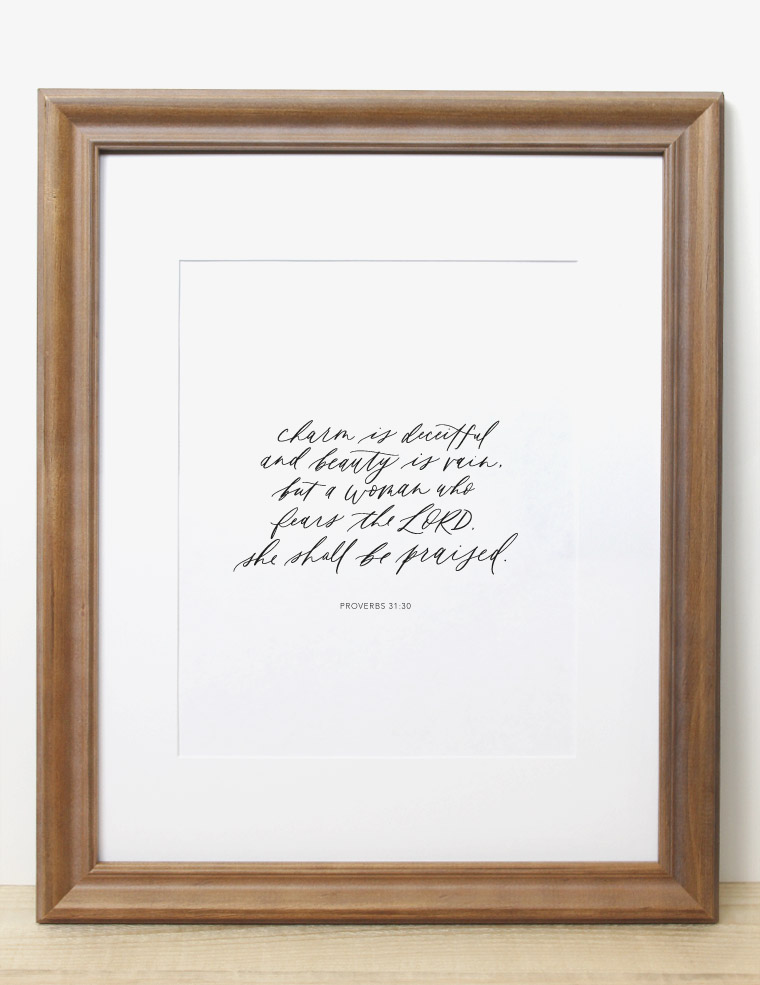 charm is deceitful
and beauty is vain,
but a woman who
fears the LORD,
she shall be praised.
PROVERBS 31:30